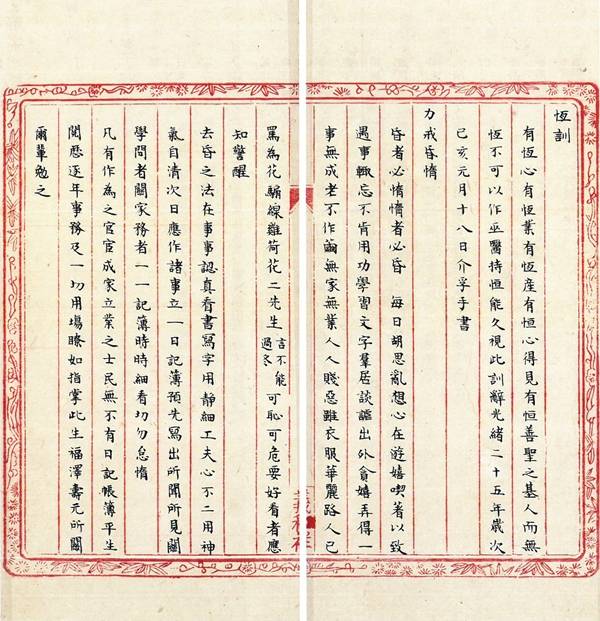 恆訓
有恆心有恆業有恆産有恒心得見有恒善聖之基人而無
恆不可以作巫醫持恒能久視此訓辭光緒二十五年歲次
己亥元月十八日介孚手書
力戒昏惰
昏者必惰惰者必昏　每日胡思亂想心在遊嬉喫著以致
遇事輙忘不肯用功學習文字羣居談謳出外貪嬉弄得一
事無成老不作𦶜無家無業人人賤惡雖衣服華麗路人已
罵為花騙線雞荷花二先生言不能過冬可恥可危要好看者應
知警醒
去昏之法在事事認真看書寫字用静細工夫心不二用神
氣自清次日應作諸事立一日記簿預先寫出所聞所見關
學問者關家務者一一記簿時時細看切勿怠惰
凡有作為之官宦成家立業之士民無不有日記帳簿平生
閱歷逐年事務及一切用場瞭如指掌此生福澤壽元所關
爾輩勉之